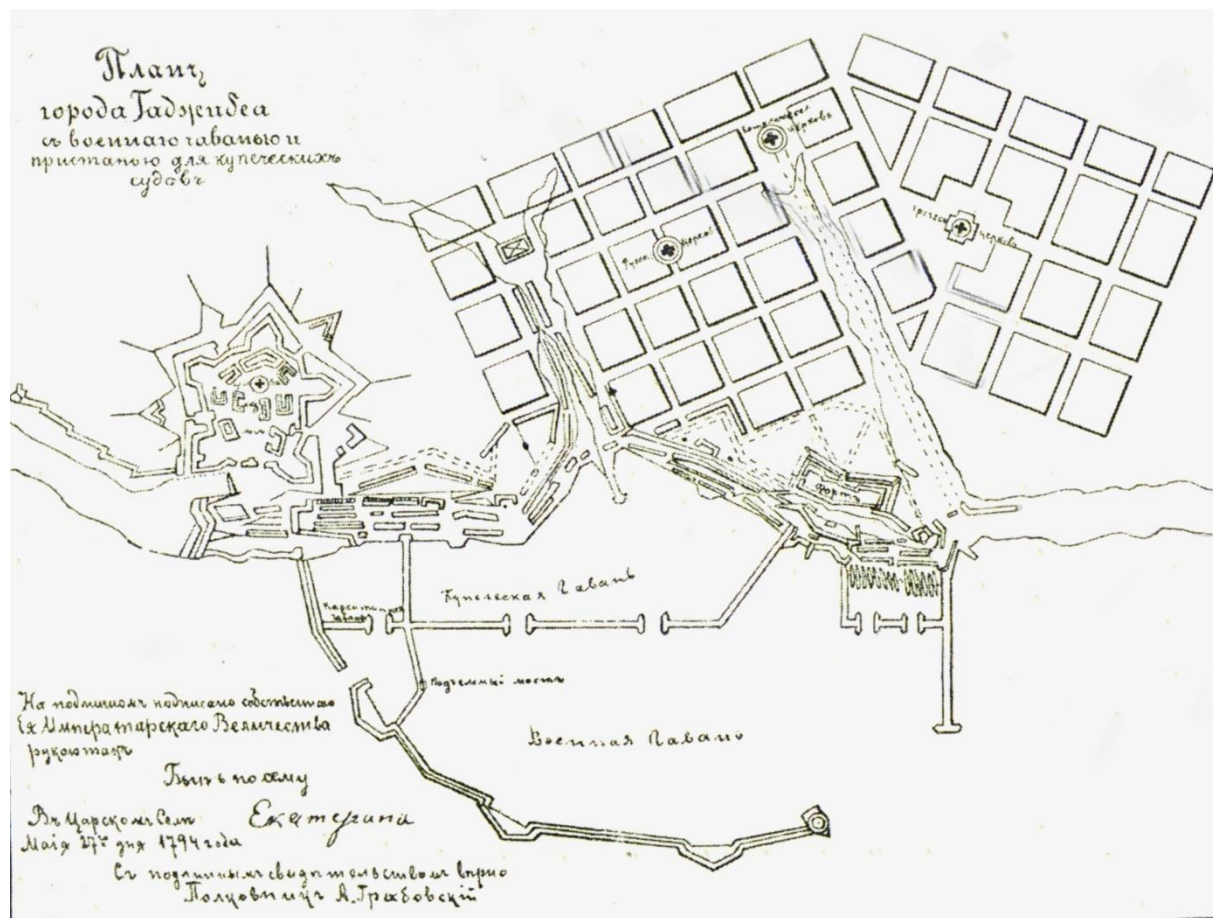 Планъ
города Гаджибеа
съ военною гаванью и
пристанью для купеческихъ
судовъ
церковь
Русск. церковь
Греческ. церковь
Фортъ
Купеческая Гавань
Карантинная гавань
Подъемный мостъ
Военная Гавань
На подлинномъ подписано собственною
Ея Императорскаго Величества
рукою такъ
Быть по сему
Екатерина
Въ Царскомъ Селѣ
Маія 27го дня 1794 года
Съ подлиннымъ свидѣтельствомъ вѣрно
Полковникъ А. Грабовскій